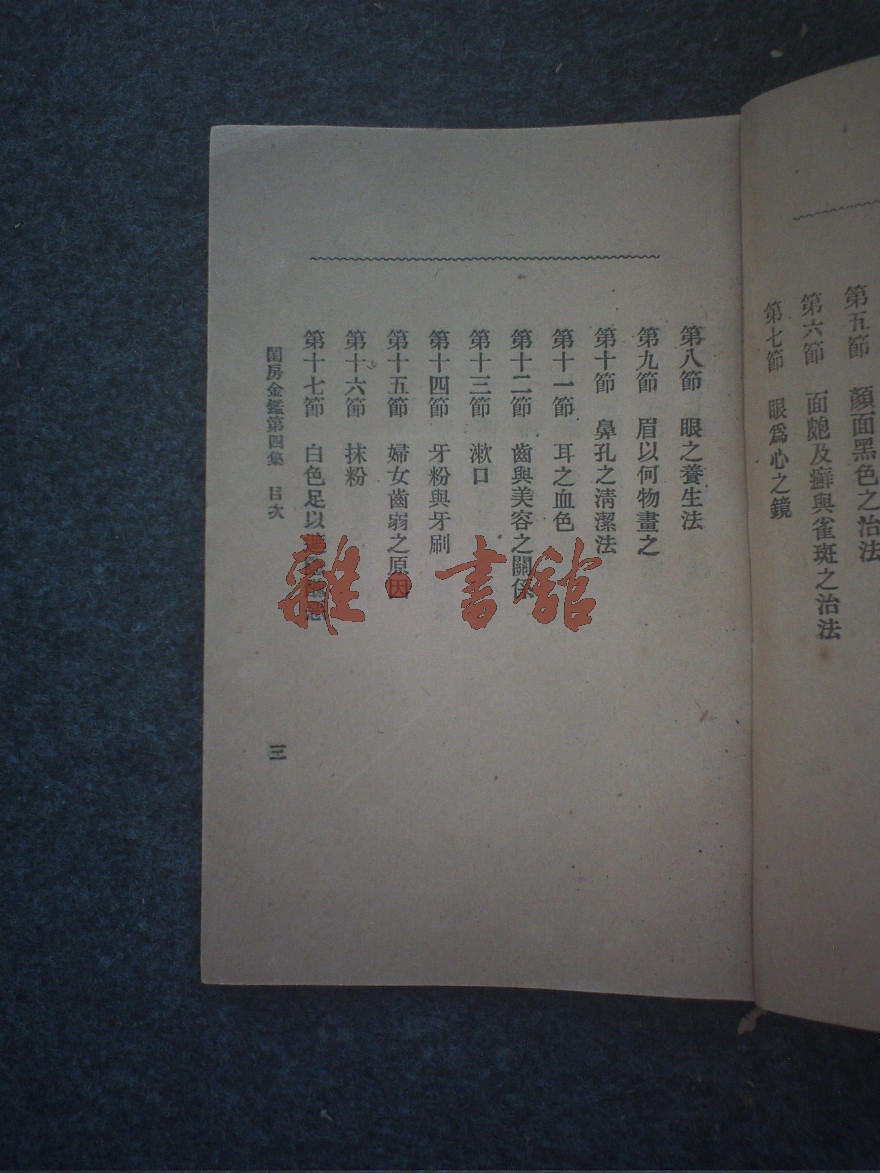 第五節 顏面黑色之治法
第六節 面皰及癬與雀斑之治法
第七節 眼爲心之鏡
第八節 眼之養生法
第九節 眉以何物畫之
第十節 鼻孔之淸潔法
第十一節 耳之血色
第十二節 齒與美容之關係
第十三節 漱口
第十四節 牙粉與牙刷
第十五節 婦女齒弱之原因
第十六節 抹粉
第十七節 白色足以
閨房金鑑第四集 目次
三
雜書館